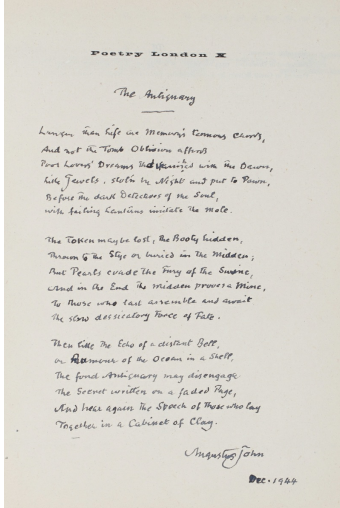 Poetry London X
The Antiquary
Longer than Life are Memory's tenuous Chords,
And not the Tomb Oblivion affords
Poor Lovers' Dreams that vanished with the Dawn,
Like Jewels, stolen by Night and put to Pawn,
Before the dark Detectives of the Soul,
with failing Lanterns imitate the Mole.
The Token may be lost, the Booty hidden,
Thrown to the Stye or buried in the Midden;
But Pearls evade the Fury of the Swine,
And in the End the Midden proves a Mine,
To those who last assemble and await
The slow dessicatory Force of Fate.
Then like the Echo of a distant Bell,
or Rumour of the Ocean in a Shell,
The fond Antiquary may disengage
The Secret written on a faded Page,
And hear again the Speech of Those who lay
Together in a Cabinet of Clay.
Augustus John
Dec. 1944